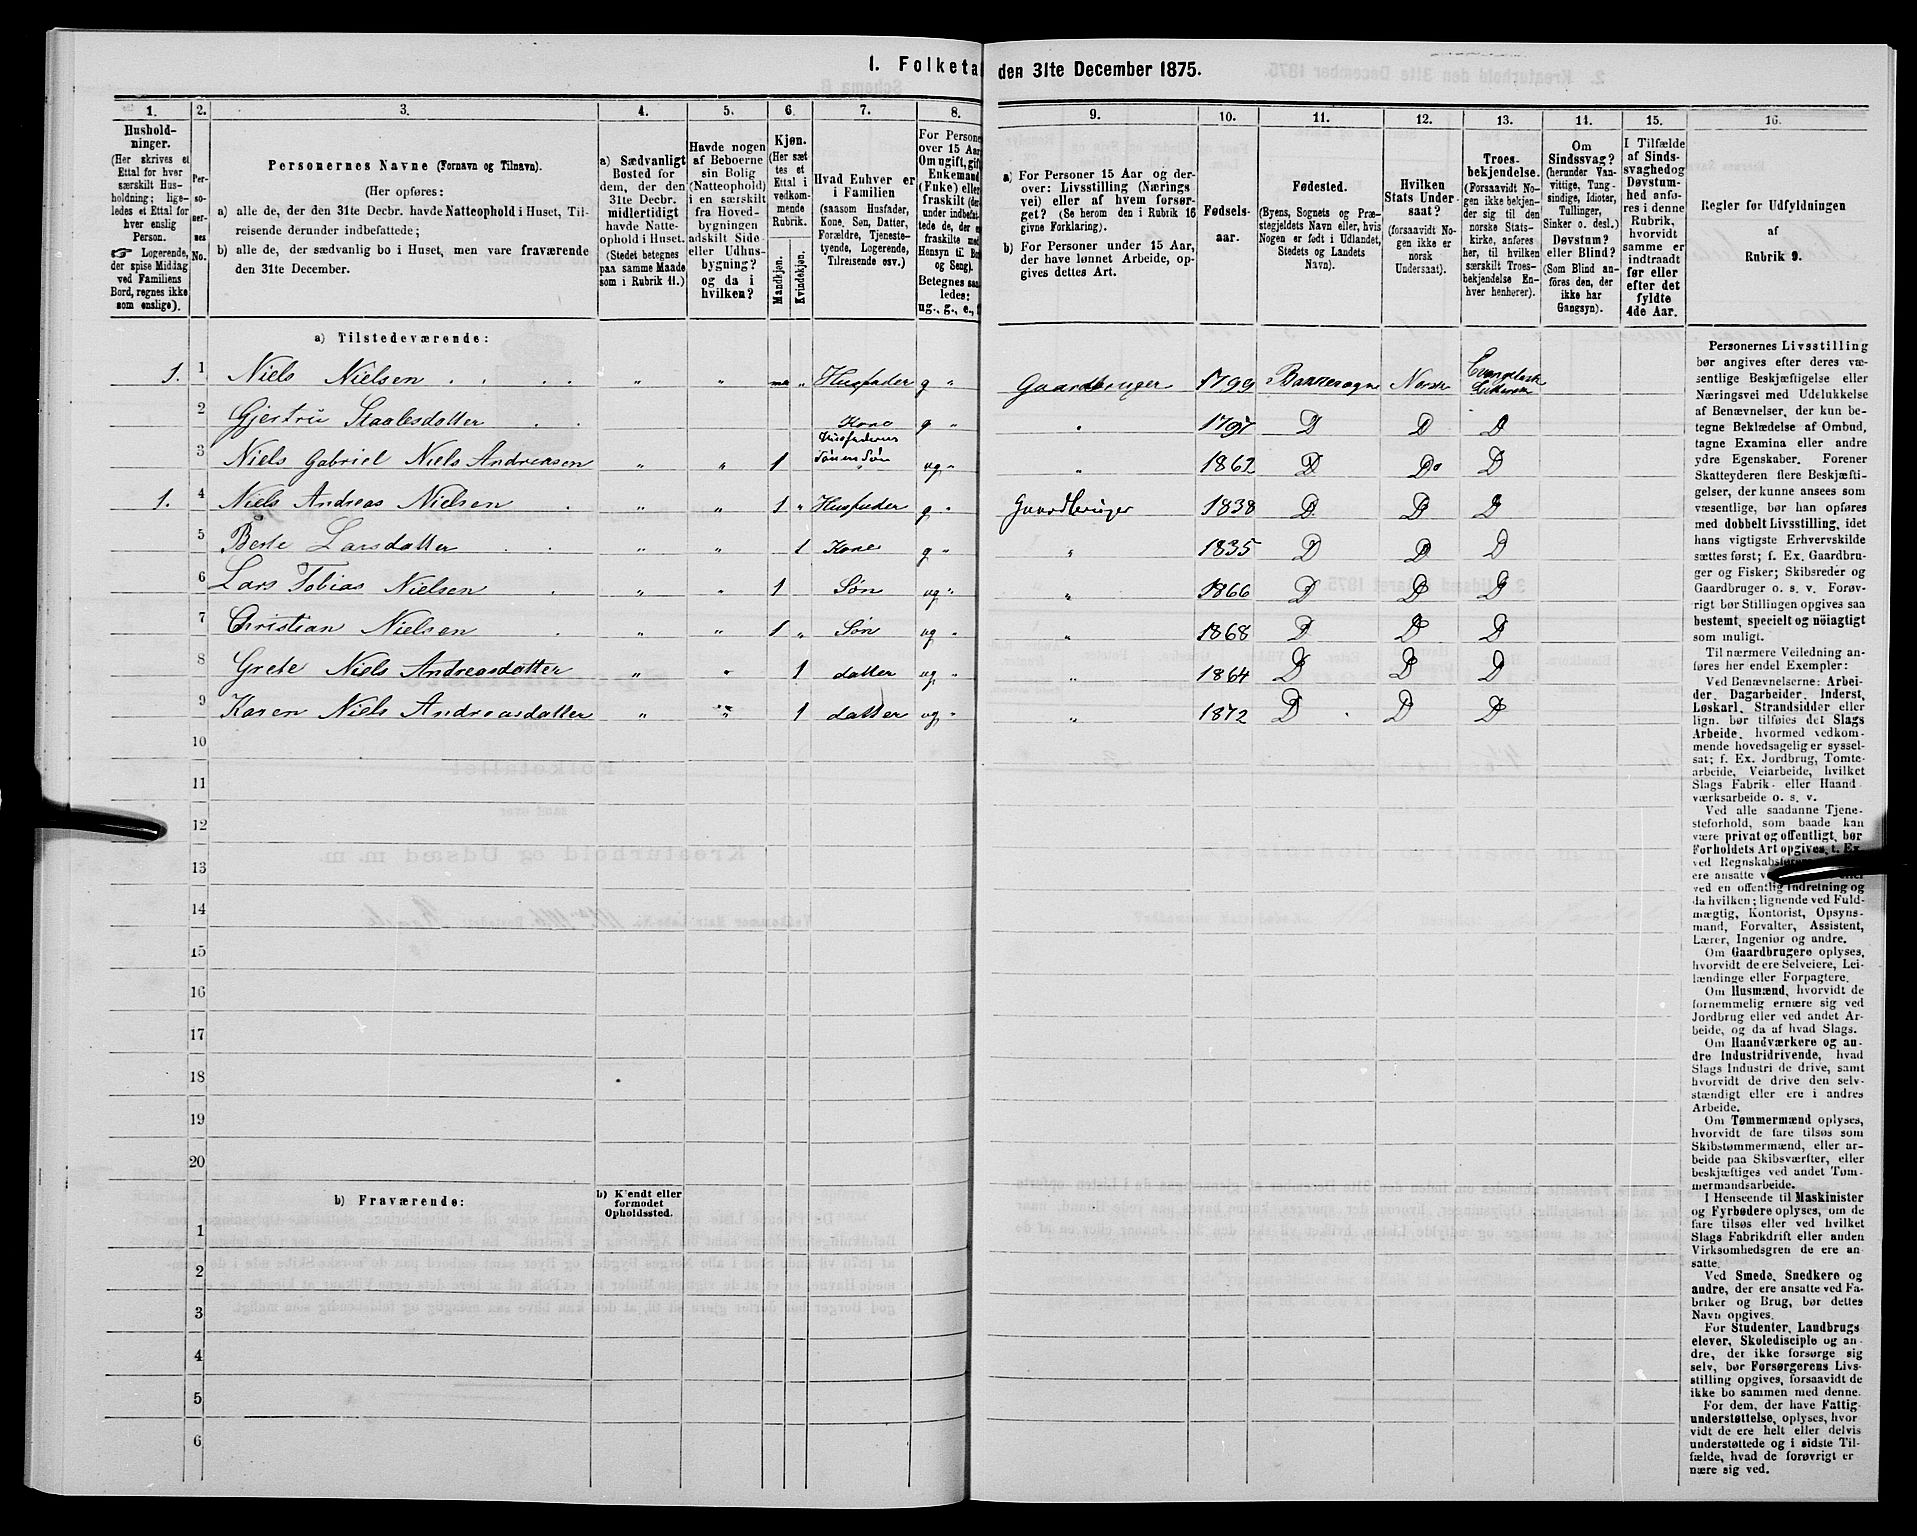 1. Folketal den 31te December 1875.
1. 2. 3. 4. 5. 6. 7. 8. 9. 10. 11. 12. 13. 14. 15. 16.
Hushold-
ninger.
(Her skrives et
Ettal for hver
særskilt Hus-
holdning; lige-
ledes et Ettal for
hver enslig
Person.
☞ Logerende,
der spise Middag
ved Familiens
Bord, regnes ikke
som enslige).
Per-
so-
ner-
nes
No.
Personernes Navne (Fornavn og Tilnavn).
(Her opføres:
a) alle de, der den 31te Decbr. havde Natteophold i Huset, Til-
reisende derunder indbefattede;
b) alle de, der sædvanlig bo i Huset, men vare fraværende
den 31te December.
a) Sædvanligt
Bosted for
dem, der den
31te Decbr.
midlertidigt
havde Natte-
ophold i Huset.
(Stedet betegnes
paa samme Maade
som i Rubrik 11.)
Havde nogen
af Beboerne
sin Bolig
(Natteophold)
i en særskilt
fra Hoved-
bygningen
adskilt Side-
eller Udhus-
bygning?
og da i
hvilken?
Kjøn.
(Her sæt-
tes et
Ettal i
vedkom-
mende
Rubrik.
Mandkjøn.
Kvindekjøn.
Hvad Enhver er
i Familien
(saasom Husfader,
Kone, Søn, Datter,
Forældre, Tjeneste-
tyende, Logerende,
Tilreisende osv.)
For Persone
over 15 Aar
Om ugift, gift
Enkemand
(Fuke) eller
fraskilt (der-
under indbefat-
tede de, der er
fraskilte med
Hensyn til Bo
og Seng).
Betegnes saa
ledes:
ug., g., e., f
a) For Personer 15 Aar og der-
over: Livsstilling (Nærings
vei) eller af hvem forsør-
get? (Se herom den i Rubrik 16
givne Forklaring).
b) For Personer under 15 Aar,
der have lønnet Arbeide, op-
gives dettes Art.
Fødsels-
aar.
Fødested.
(Byens, Sognets og Præ-
stegjeldets Navn eller, hvis
Nogen er født i Udlandet,
Stedets og Landets
Navn).
Hvilken
Stats Under-
saat?
(forsaavidt No-
gen ikke er
norsk
Undersaat).
Troes-
bekjendelse.
(Forsaavidt No-
gen ikke bekjen-
der sig til den
norske Stats-
kirke, anføres
her, til hvilken
særskilt Troes-
bekjendelse En-
hver henhører).
Om
Sindssvag?
(herunder Van-
vittige, Tung-
sindige, Idioter,
Tullinger,
Sinker o. desl.)
Døvstum?
eller Blind?
(Som Blind an-
föres den, der
ikke har
Gangsyn).
I Tilfælde
af Sinds-
svaghed og
Døvstum-
hed anfø-
res i denne
Rubrik,
hvorvidt
samme er
indtraadt
før eller
efter det
fyldte
4de Aar.
Regler for Udfyldningen
af
Rubrik 9.
a) Tilstedeværende:
1. 1 Niels Nielsen „ „ „ Husfader g „ Gaardbruger 1799 Norsk
2 Gjertru Staalesdatter Kone g „ „ 1797 D D D
3 Niels Gabriel Niels Andreasen „ „ 1 Husfaderens Sønnesøn ug „ „ 1862 D Do D
1. 4 Niels Andreas Nielsen „ „ 1 „ Husfader g „ Gaardbruger 1838 D D D
5 Berte Larsdatter „ „ 1 Kone g „ „ 1835 D D D
6 Lars Tobias Nielsen „ „ 1 Søn ug „ „ 1866 D D D
7 Christian Nielsen „ „ 1 „ Søn ug „ „ 1868 D D D
8 Grete Niels Andreasdatter „ „ 1 datter ug „ „ 1864 D D D
9 Karen Niels Andreasdatter „ „ 1 datter ug „ „ 1872 D D D
10
11
12
13
14
15
16
17
18
19
20
b) Fraværende:
b) Kjendt eller
formodet
Opholdssted.
1
2
3
4
5
6
Personernes Livsstilling
bør angives efter deres væ-
sentlige Beskjæftigelse eller
Næringsvei med Udelukkelse
af Benævnelser, der kun be-
tegne Beklædelse af Ombud,
tagne Examina eller andre
ydre Egenskaber. Forener
Skatteyderen flere Beskjæfti-
gelser, der kunne ansees som
væsentlige, bør han opføres
med dobbelt Livsstilling, idet
hans vigtigste Erhvervskilde
sættes først; f. Ex. Gaardbru-
ger og Fisker; Skibsreder og
Gaardbruger o. s. v. Forøv-
rigt bør Stillingen opgives saa
bestemt, specielt og nöiagtigt
som muligt.
Til nærmere Veiledning an-
føres her endel Exempler:
Ved Benævnelserne: Arbei-
der, Dagarbeider, Inderst,
Løskarl, Strandsidder eller
lign. bør tilføies det Slags
Arbeide, hvormed vedkom-
mende hovedsagelig er syssel-
sat; f. Ex. Jordbrug, Tomte-
arbeide, Veiarbeide, hvilket
Slags Fabrik- eller Haand
værksarbeide o. s. v.
Ved alle saadanne Tjene-
steforhold, som baade kan
være privat og offentligt, bør
Forholdets Art opgives, f. Ex
ved Regnskabsførere
ere ansatte
ved en offentlig Indretning og
da hvilken; lignende ved Fuld-
mægtig, Kontorist, Opsyns-
mand, Forvalter, Assistent,
Lærer, Ingeniør og andre.
Om Gaardbrugere oplyses,
hvorvidt de ere Selveiere, Lei-
lændinge eller Forpagtere.
Om Husmænd, hvorvidt de
fornemmelig ernære sig ved
Jordbrug eller ved andet Ar-
beide, og da af hvad Slags.
Om Haandværkere og an-
dre Industridrivende, hvad
Slags Industri de drive, samt
hvorvidt de drive den selv-
stændigt eller ere i andres
Arbeide.
Om Tømmermænd oplyses,
hvorvidt de fare tilsøs som
Skibstømmermænd, eller ar-
beide paa Skibsværfter, eller
beskjæftiges ved andet Tøm-
mermandsarbeide.
I Henseende til Maskinister
og Fyrbødere oplyses, om de
fare tilsøs eller ved hvilket
Slags Fabrikdrift eller anden
Virksomhedsgren de ere an-
satte.
Ved Smede, Snedkere og
andre, der ere ansatte ved Fa-
briker og Brug, bør dettes
Navn opgives.
For Studenter, Landbrugs
elever, Skoledisciple og an-
dre, der ikke forsørge sig
selv, bør Forsørgerens Livs-
stilling opgives, forsaavidt de
ikke bo sammen med denne.
For dem, der have Fattig-
understøttelse, oplyses, hvor
vidt de ere helt eller delvis
understøttede og i sidste Til-
fælde, hvad de forøvrigt er-
nære sig ved.